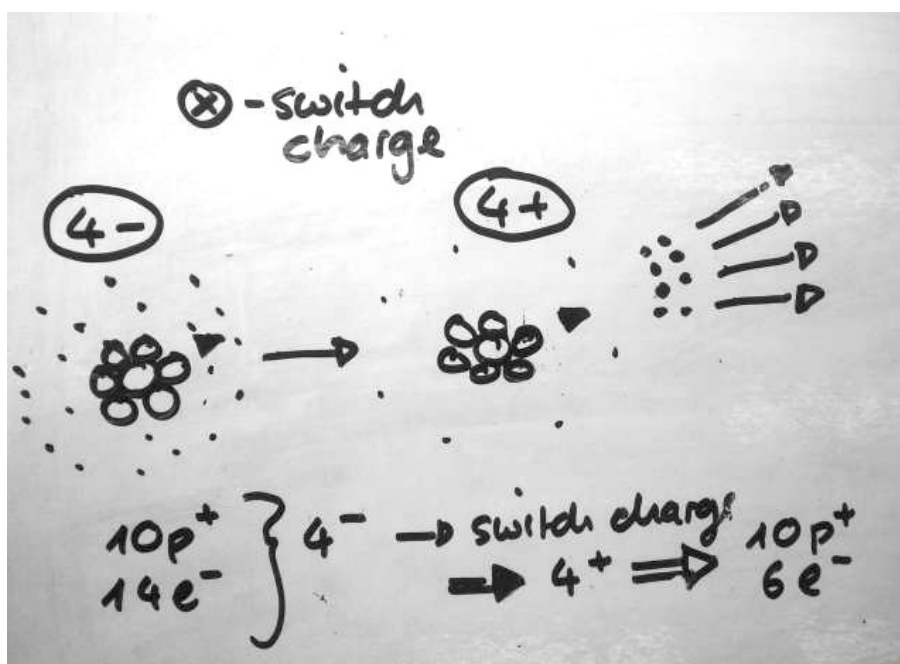 ⓧ - switch
charge
4-
4+
10p⁺
14e⁻
} 4⁻ → switch charge
➡ 4⁺ ⇒
10p⁺
6e⁻